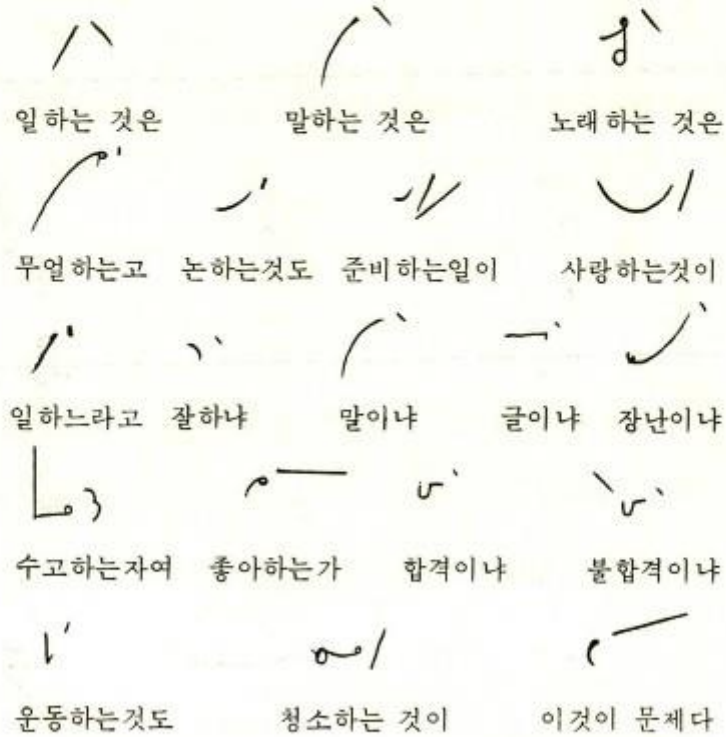 일하는 것은 말하는 것은 노래하는 것은
무얼하는고 논하는것도 준비하는일이 사랑하는것이
일하느라고 잘하냐 말이냐 글이냐 장난이냐
수고하는자여 좋아하는가 합격이냐 불합격이냐
운동하는것도 청소하는 것이 이것이 문제다